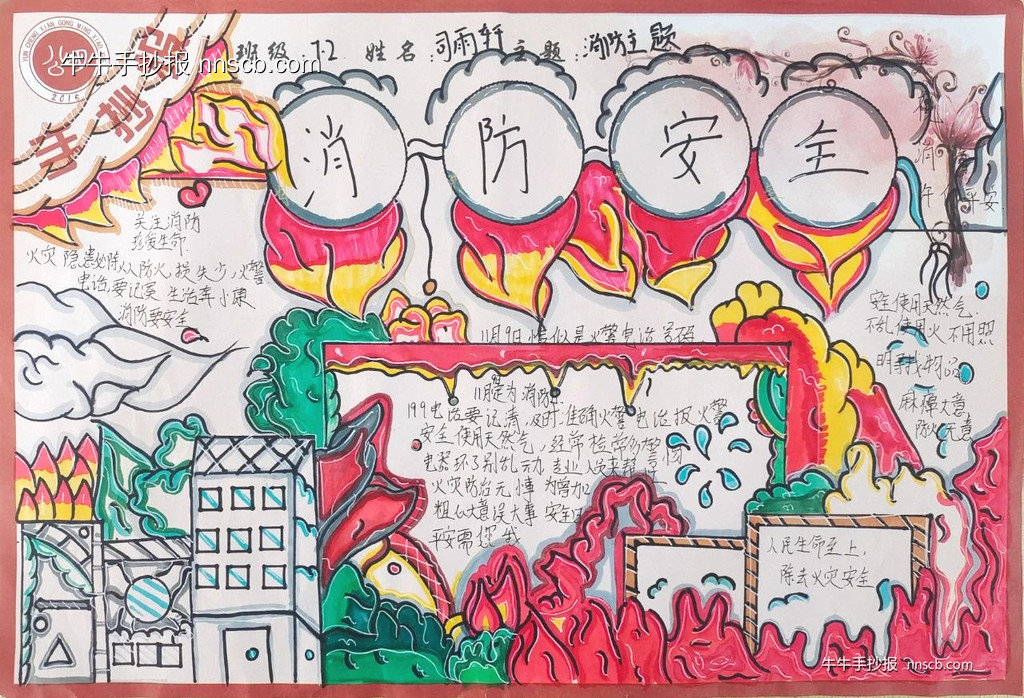 YUN CHENG XIAN GONG MING XIAO
2015
牛牛手抄报 nnscb.com
手抄报
班级:7.2 姓名:司雨轩 主题:消防主题
消防安全
关注消防
珍爱生命
火灾隐患必除从防火,损失少,火警
电话要记英 生活奔小康
消防要安全
平安
11月9日 是火警电话号码
安全使用天然气
不乱使用火 不用照
明寻找物品
麻痹大意
防火
119电话要记清,及时准确火警电话报火警
安全使用天然气,经常检常
电器坏了别乱动 专业人
火灾防治无小事
粗心大意误大事 安全
平安需您我
人民生命至上,
除去火灾安全
牛牛手抄报 nnscb.com